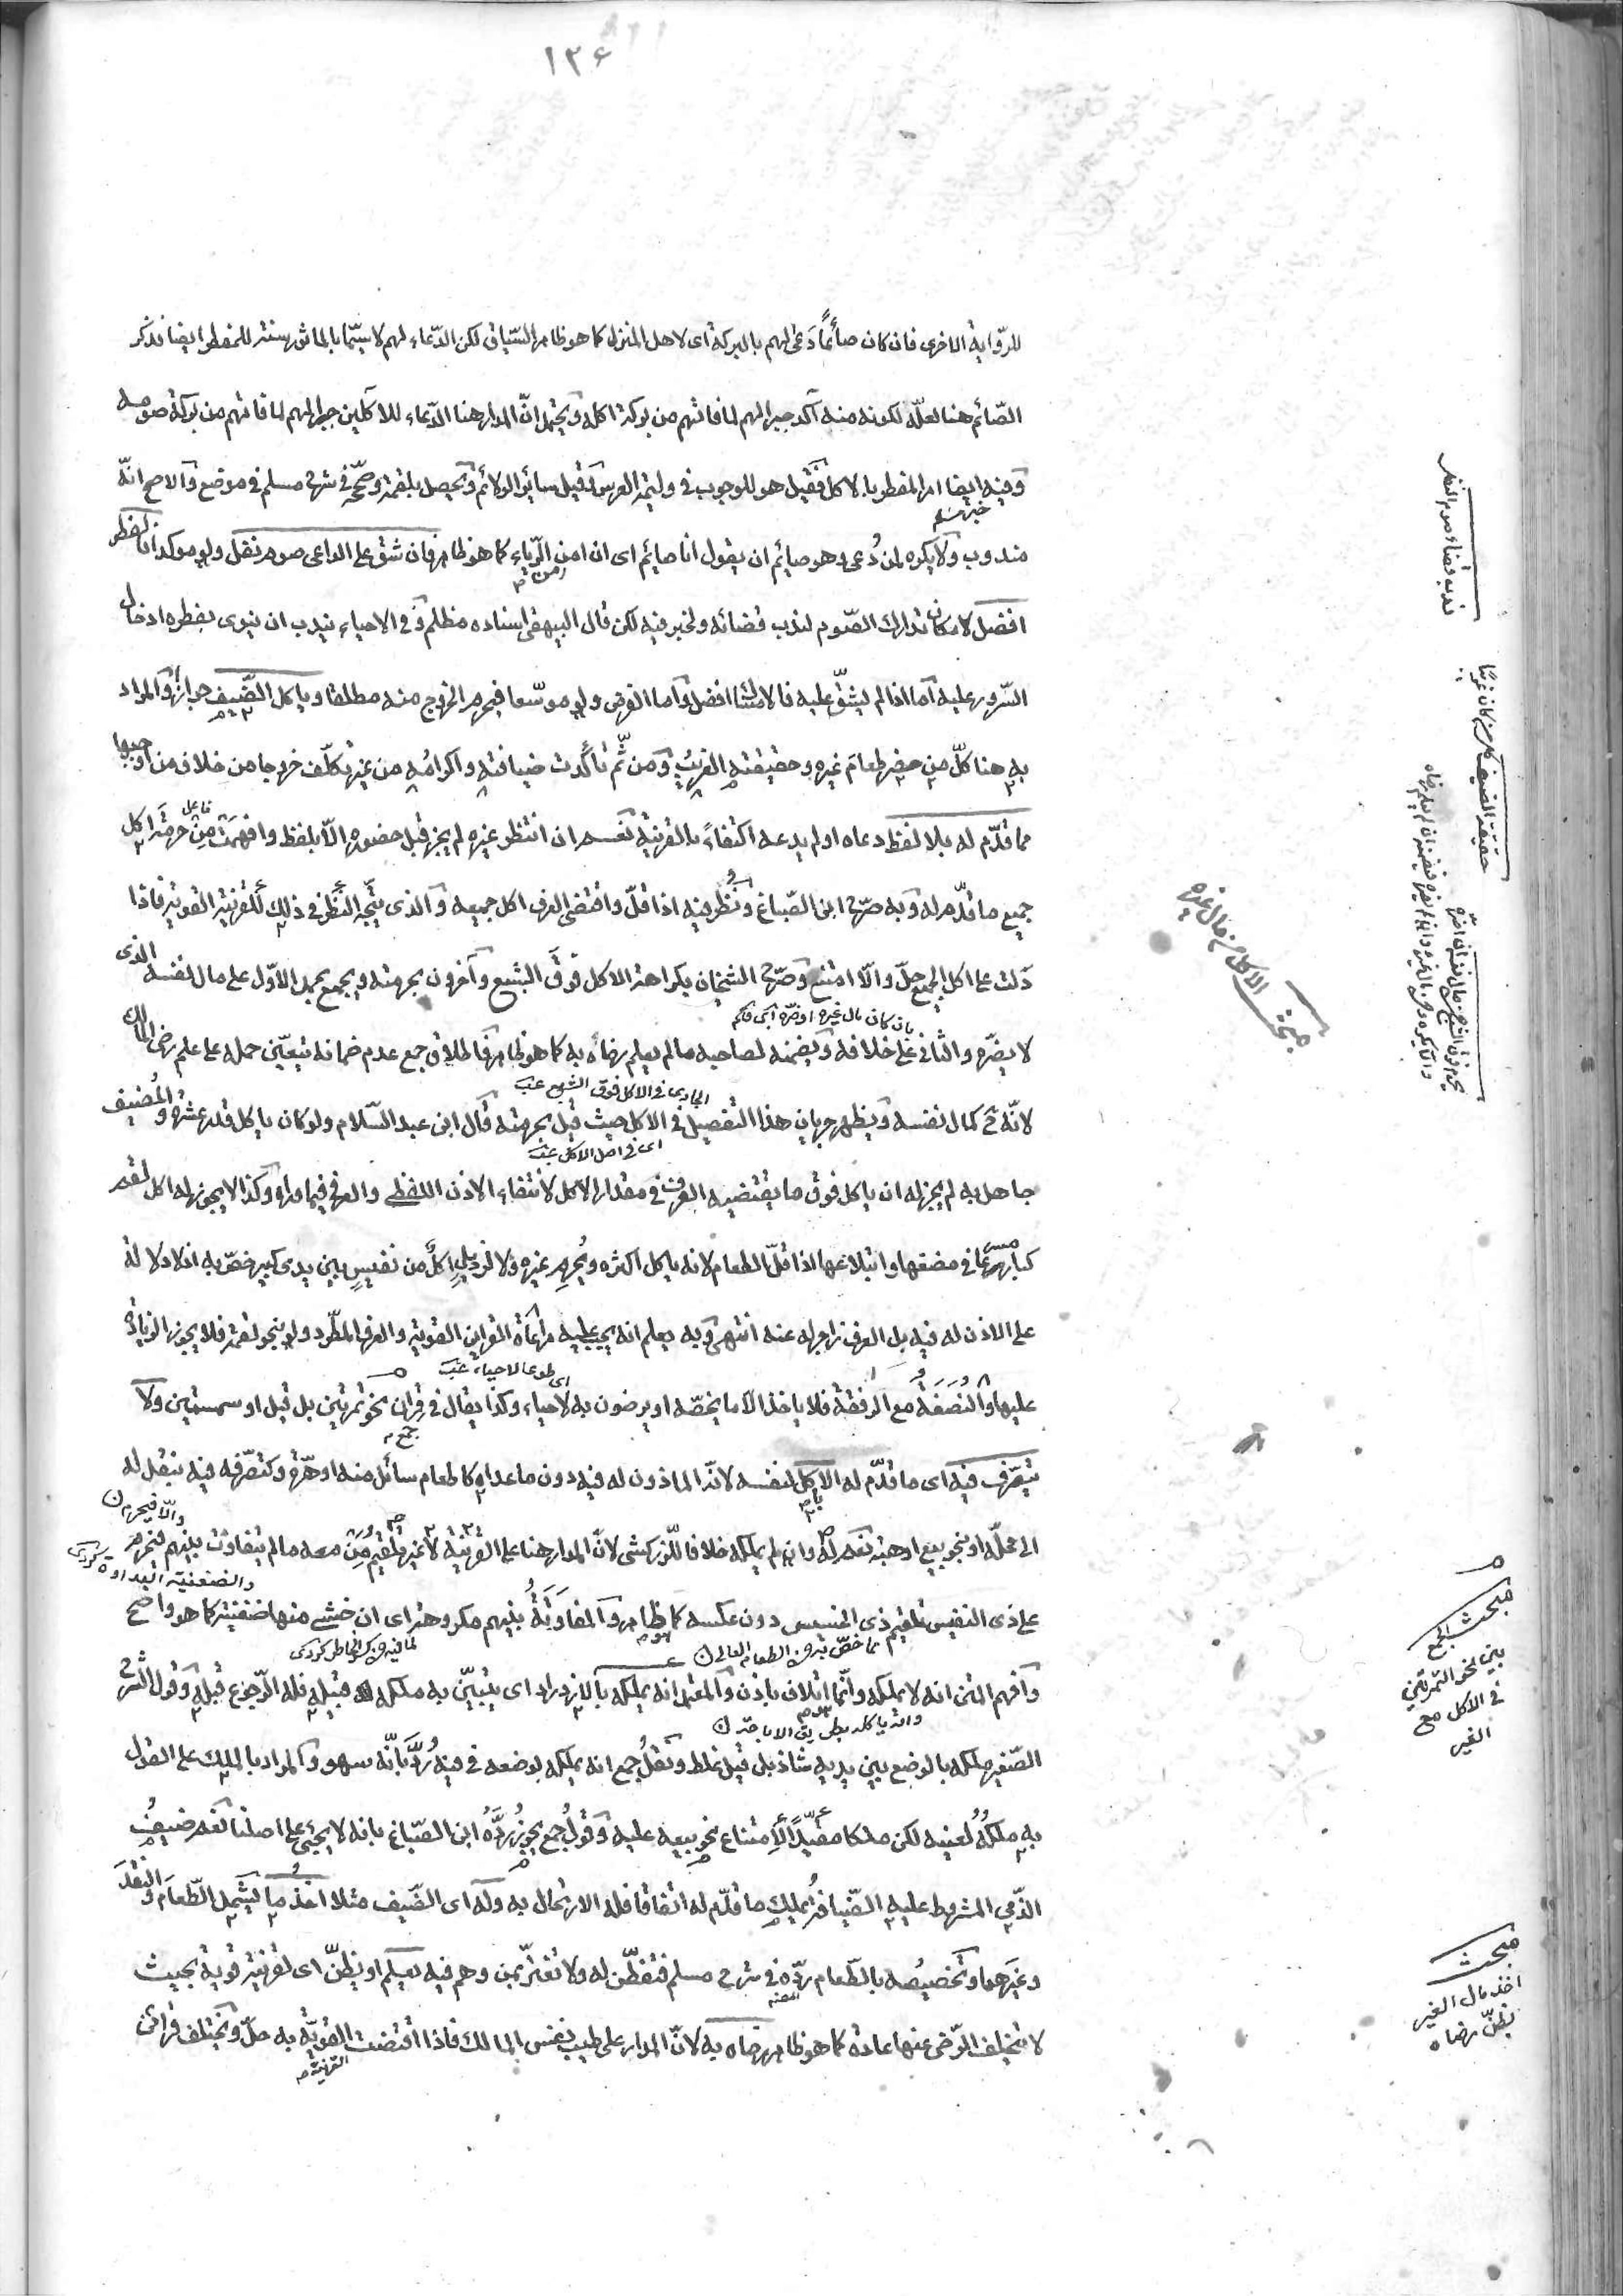 ١٣٤
للرّواية الاخرى فان كان صائمًا دَعَى لهم بالبركة اى لاهل المنزل كما هو ظاهر السّياق لكن الدّعاء لهم لا سيّما بالماثور سنة للمفطر ايضا فذكر
الصّائم هنا لعلّه لكونه منه آكد جبرا لهم لما فاتهم من بركة اكله ويحتمل انّ المراد هنا الدّعاء للاكلين جبرا لهم لما فاتهم من بركة صومه
وفيه ايضا امر المفطر بالاكل فقيل هو للوجوب فى وليمة العرس وقيل سائر الولائم ويحصل بلقمة وصحّحه فى شرح مسلم فى موضع والاصح انّه
خبر مسلم
مندوب ولا يكره لمن دُعى وهو صائم ان يقول انا صائم اى ان امن الرّياء كما هو ظاهر فان شقّ على الداعى صوم نفل ولو موكدا فالفطر
افضل لامكان تدارك الصّوم لندب قضائه ولخبر فيه لكن قال البيهقى اسناده مظلم وفى الاحياء يندب ان ينوى بفطره ادخال
السّرور عليه اما اذا لم يشقّ عليه فالامساك افضل واما الفرض ولو موسّعا فيحرم الخروج منه مطلقا وياكل الضّيف جوازا والمراد
به هنا كلّ من حضر طعامَ غيره وحقيقته الغريبُ ومن ثَمّ تأكّدت ضيافته واكرامُه من غير تكلّف خروجا من خلاف من اوجبها
مما قدّم له بلا لفظ دعاه او لم يدعه اكتفاءً بالقرينة نعم ان انتظر غيره لم يجز قبل حضوره الّا بلفظ وافهمت مِنْ حرمةَ اكل
جميع ما قدّم له وبه صرّح ابن الصّباغ ونُظِر فيه اذا قلّ واقتضى العرف اكل جميعه والذى يتّجه النظر فى ذلك للقرينة القوية فاذا
دلّت على اكل الجميع حلّ والّا امتنع وصرّح الشيخان بكراهة الاكل فوق الشبع وآخرون بحرمته ويجمع بحمل الاوّل على مال نفسه الذى
بان كان مال غيره او ضرّه
لا يضرّه والثانى على خلافه ويضمنه لصاحبه ما لم يعلم رضاه به كما هو ظاهر فاطلاق جمع عدم ضمانه يتعيّن حمله على علم رضى المالك
الجارى فى الاكل فوق الشبع
لانّه ح كمال نفسه ويظهر جريان هذا التفصيل فى الاكل حيث قيل بحرمته قال ابن عبد السّلام ولو كان ياكل قدر عشرة والمُضيف
اى فى اصل الاكل
جاهل به لم يجز له ان ياكل فوق ما يقتضيه العرف فى مقدار الاكل لانتفاء الاذن اللفظى والعرفى فيما وراءه وكذا لا يجوز له اكل لقم
كبار مسرعا فى مضغها وابتلاعها اذا قلّ الطعام لانه ياكل اكثره ويُحرم غيره ولا لرذيل اكلٌ من نفيسٍ بين يدى كبير خصّ به اذ لا دلالة
على الاذن له فيه بل العرف زاجر له عنه انتهى وبه يعلم انه يجب عليه مراعاة القراين القوية والعرف المطّرد ولو بنحو لقمة فلا يجوز الزيادة
اى طوعا لا حياء
عليها والنصَفة مع الرفقة فلا ياخذ الا ما يخصّه او يرضون به لا حياء وكذا يقال فى قران نحو تمرتين بل قيل او سمسمتين ولا
يتصرّف فيه اى ما قدّم له الا بالاكل لنفسه لانّه الماذون له فيه دون ما عداه كاطعام سائل منه او هرّة وكتصرّفه فيه بنقل له
الى محلّه او بنحو بيع او هبة نعم له وان لم يملكه خلافا للزركشى لانّ المدار هنا على القرينة لا غير تلقيم مَن معه ما لم يتفاوت بينهم فيحرم
والّا فيحرم
والضغينة العداوة كردى
على ذى النفيس تلقيم ذى الخسيس دون عكسه كما هو ظاهر والمفاوتة بينهم مكروهة اى ان خشى منها ضغينة كما هو واضح
لما فيه من كسر الخاطر كردى
وافهم المتن انه لا يملكه وانّما اتلاف باذن والمعتمد انه يملكه بالازدراد اى يتبيّن به ملكه قبيله فله الرّجوع قبله وقول الشرح
الصّغير ملكه بالوضع بين يديه شاذ بل قيل غلط ونقلُ جمع انه يملكه بوضعه فى فيه رُدّ بأنّه سهو والمراد بالملك على القول
به ملكُهُ لعينه لكن ملكا مقيّدًا لامتناع نحو بيعه عليه وقول جمع يجوز ردّه ابن الصبّاغ بانه لا يجئ على اصلنا نعم ضيف
الذّمى المشروط عليه الضّيافة يملك ما قدّم له اتفاقا فله الارتحال به وله اى الضّيف مثلا اخذ ما يشمل الطّعام والنقد
وغيرهما وتخصيصه بالطّعام ردّه فى شرح مسلم فتفطّن له ولا تغترّ بمن وهم فيه يعلم او يظنّ اى لقرينة قوية بحيث
لا يتخلف الرّضى عنها عادة كما هو ظاهر رضاه به لانّ المدار على طيب نفس المالك فاذا اقتضت القرينة القويّة به حلّ وتختلف قرائن
ندب قضاء صوم النفل
حقيقة الضيف
مبحث الاكل من مال غيره
مبحث الجمع
بين نحو التمرتين
فى الاكل مع
الغير
مبحث
اخذ مال الغير
بظنّ رضاه